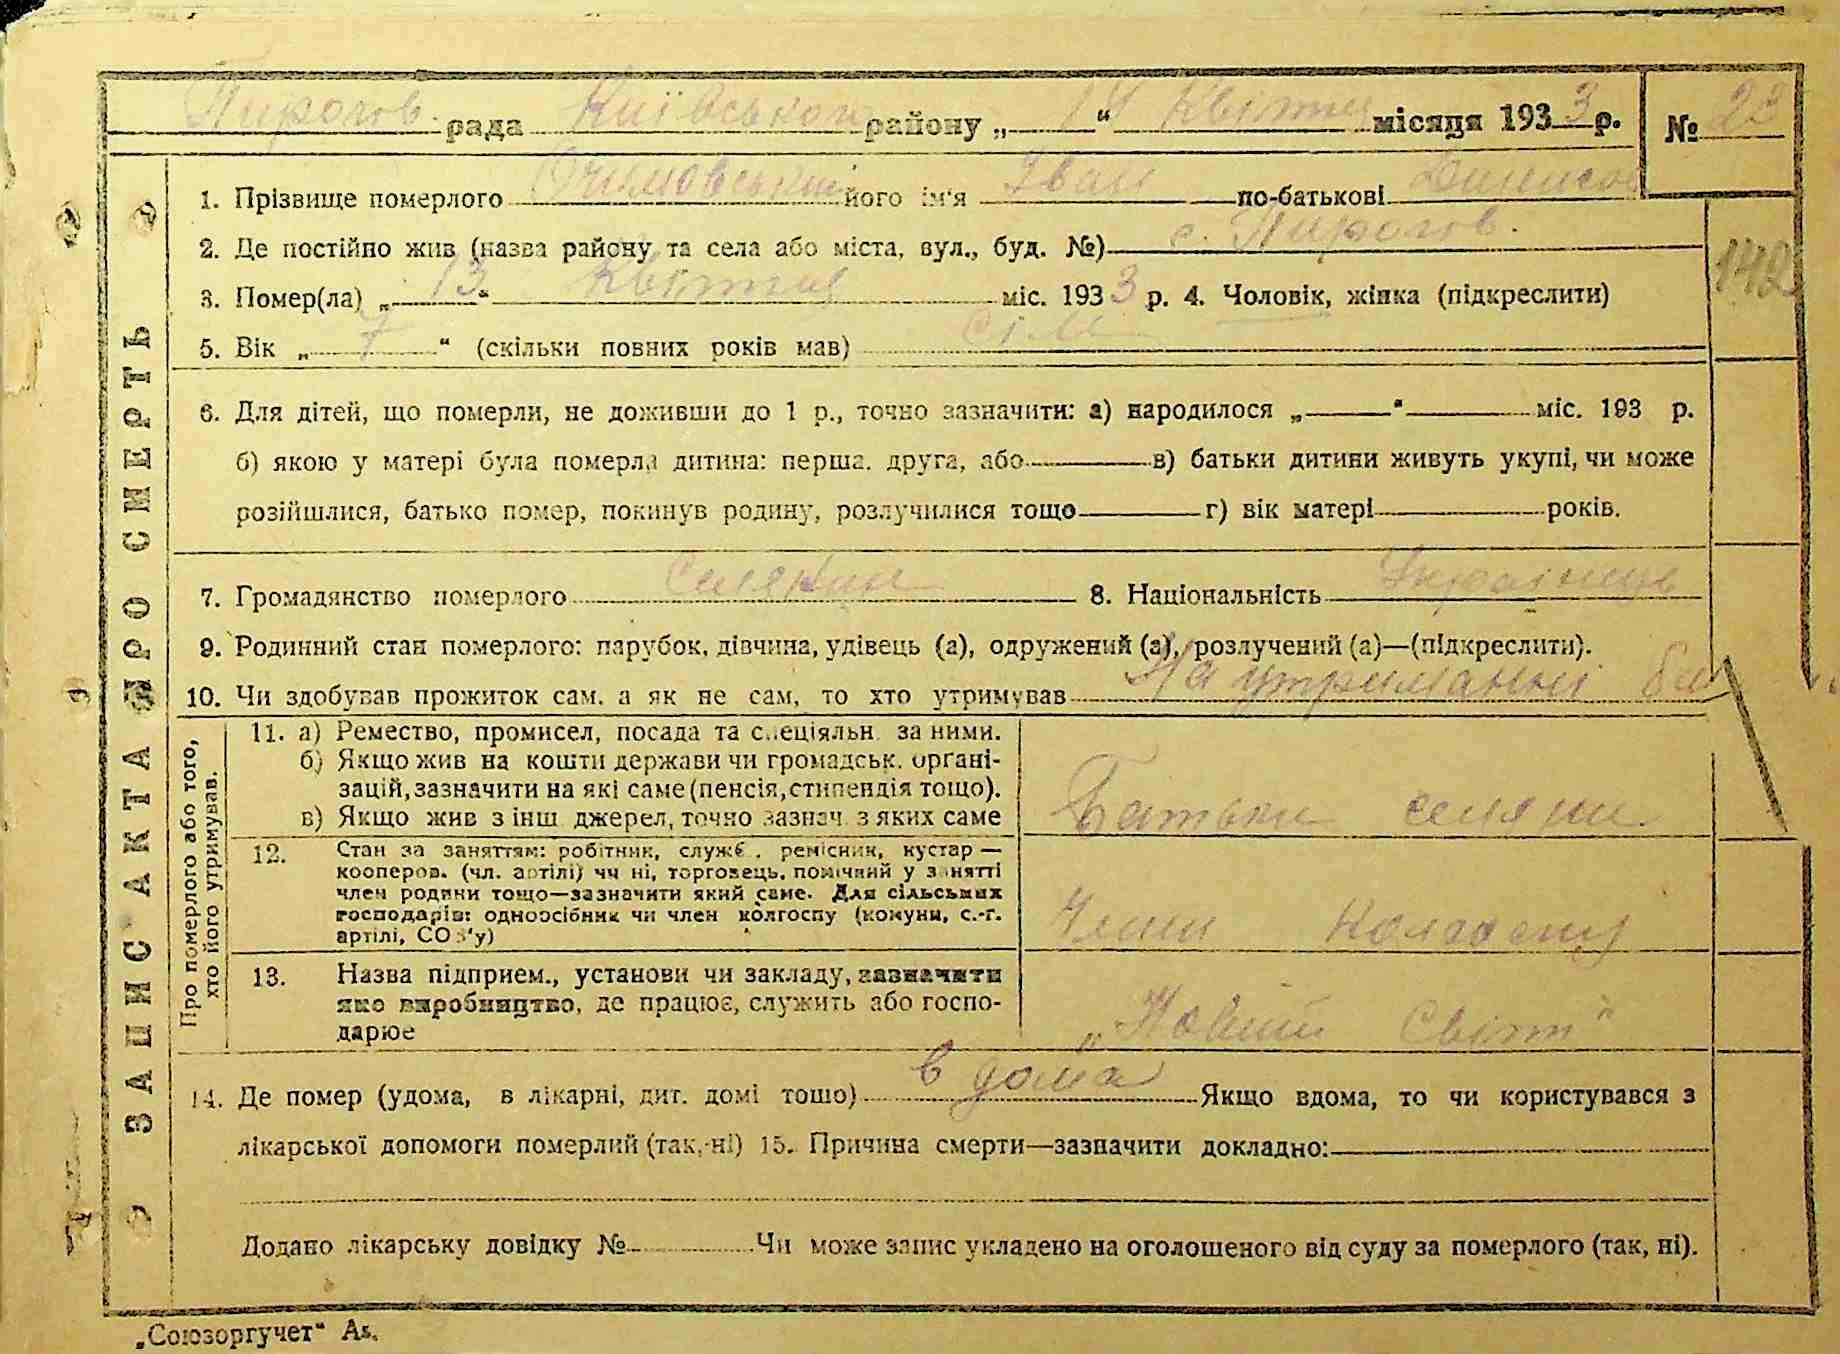 Пирогов рада Київського району „14“ Квітня місяця 1933 р. № 23
1. Прізвище померлого його ім'я Іван по-батькові Денисов
2. Де постійно жив (назва району та села або міста, вул., буд. №) с. Пирогов.
142
3. Помер(ла) „13“ Квітня міс. 1933 р. 4. Чоловік, жінка (підкреслити)
5. Вік „7“ (скільки повних років мав) сім
6. Для дітей, що померли, не доживши до 1 р., точно зазначити: а) народилося „ “ міс. 193 р.
б) якою у матері була померла дитина: перша. друга, або в) батьки дитини живуть укупі, чи може
розійшлися, батько помер, покинув родину, розлучилися тощо г) вік матері років.
7. Громадянство померлого Селянин 8. Національність Українець
9. Родинний стан померлого: парубок, дівчина, удівець (а), одружений (а), розлучений (а)—(підкреслити).
10. Чи здобував прожиток сам. а як не сам, то хто утримував На утриманні
ЗАПИС АКТА ПРО СМЕРТЬ
Про померлого або того, хто його утримував.
11. а) Ремество, промисел, посада та спеціяльн. за ними.
б) Якщо жив на кошти держави чи громадськ. органі-
зацій, зазначити на які саме (пенсія, стипендія тощо).
в) Якщо жив з інш. джерел, точно зазнач. з яких саме
Батьки селяни
12. Стан за заняттям: робітник, служб., ремісник, кустар —
кооперов. (чл. артілі) чи ні, торговець, помічний у занятті
член родини тощо—зазначити який саме. Для сільських
господарів: одноосібник чи член колгоспу (комуни, с.-г.
артілі, СОЗ'у)
Члени колгоспу
13. Назва підприєм., установи чи закладу, зазначити
яке виробництво, де працює, служить або госпо-
дарює
„Новий Світ“
14. Де помер (удома, в лікарні, дит. домі тощо) в дома Якщо вдома, то чи користувався з
лікарської допомоги померлий (так, ні) 15. Причина смерти—зазначити докладно:
Додано лікарську довідку № Чи може запис укладено на оголошеного від суду за померлого (так, ні).
„Союзоргучет“ Аз.